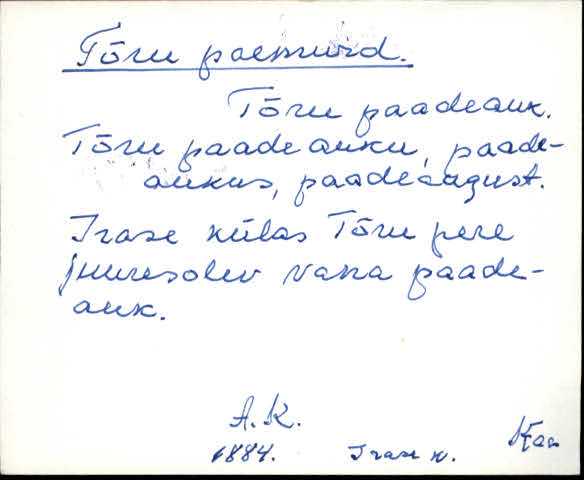 Tõru paemurd.
Tõru paadeauk.
Tõru paadeauku, paade-
aukus, paadeaugust.
Irase külas Tõru pere
juuresolev vana paade-
auk.
A.K.
1884. Irase k. Kaa